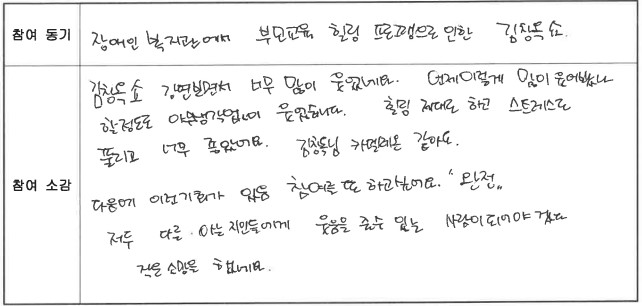 참여 동기
장애인 복지관에서 부모교육 힐링 프로그램으로 인한 김창옥 쇼.
참여 소감
김창옥 쇼 강연보면서 너무 많이 웃었네요. 언제 이렇게 많이 웃어봤나
할정도로 아무생각없이 웃었습니다. 힐링 제대로 하고 스트레스도
풀리고 너무 좋았어요. 김창옥님 카멜레온 같아요.
다음에 이런기회가 있음 참여를 또 하고싶어요. "완전"
저두 다른 아는 지인들에게 웃음을 줄수 있는 사람이 되어야 겠다
작은 소망을 했네요.